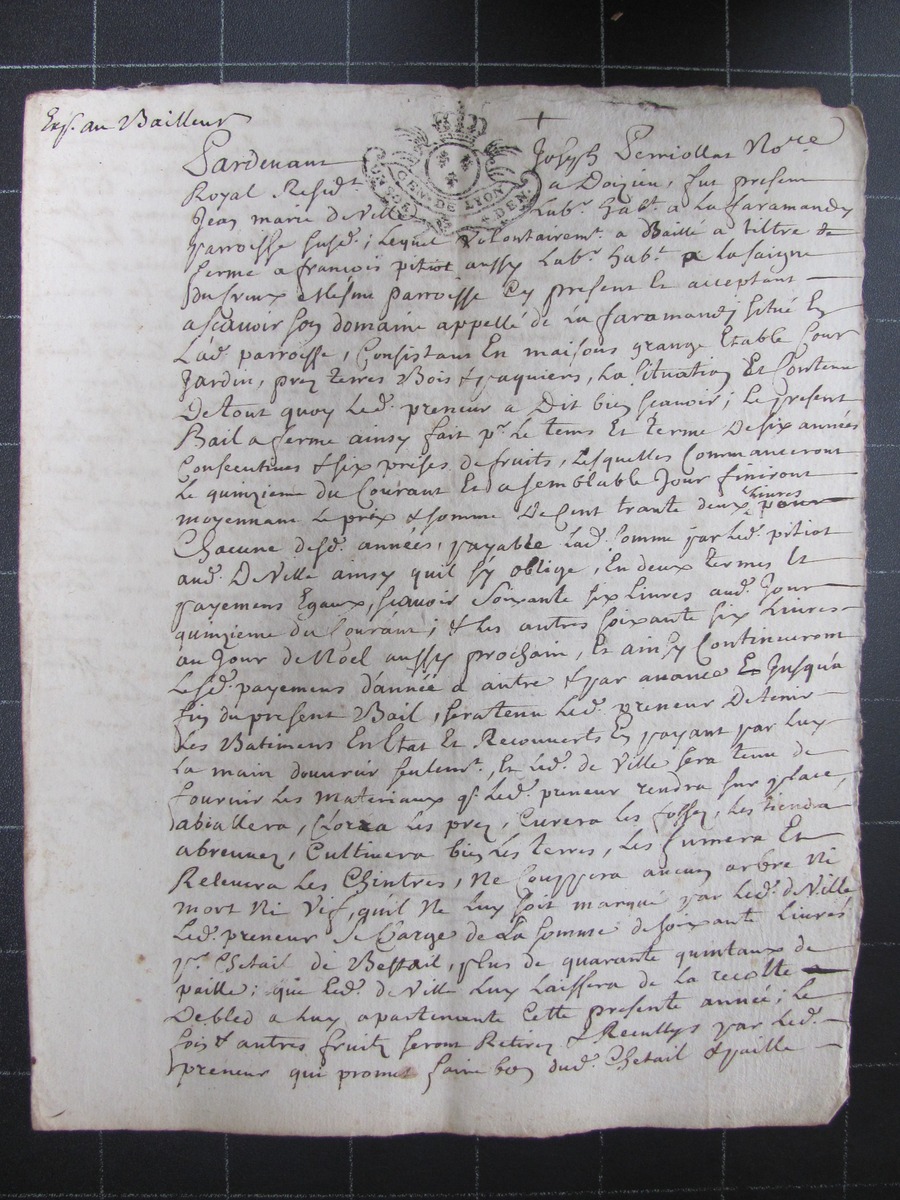 Exp. au Bailleur
Pardevant Joseph Perriollat No.re
Royal Resid.t a Doizieu, fut present
Jean marie de Ville Lab.r hab.t a La faramandy
parroisse susd.; Lequel volontairem.t a Baillé a tiltre de
ferme a francois pitiot aussy Lab.r hab.t a la saigne
mesme parroisse Cy present Et acceptant
ascavoir son domaine appellé de La faramandy situé En
Lad. parroisse, Consistant En maisons grange Etable Cour
Jardin, prez terres Bois & paquiers, La situation Et Contenu
De tout quoy Led. preneur a Dit bien scavoir; Le present
Bail a ferme ainsy fait p.r le tems Et terme De six années
Consecutives & six prises de fruits, Lesquelles Commanceront
Le quinzieme du Courant Et a semblable Jour finiront
moyennant Le prix & somme De Cent trante deux Livres pour
Chacune desd. années, payable Lad. somme par Led. pitiot
aud. De Ville ainsy quil sy oblige, En deux termes Et
payemens Egaux, scavoir soixante six Livres aud. Jour
quinzieme du Courant; & Les autres soixante six Livres
au Jour de Noel aussy prochain, Et ainsy Continueront
Lesd. payemens d'année a autre & par avance Et Jusqu'a
fin du present Bail, sera tenu Led. preneur De tenir
Les Batimens En Etat Et Recouverts En payant par Luy
La main douvrier seulem.t, Et Led. de Ville sera tenu de
fournir Les materiaux q. Led. preneur rendra sur place,
abiallera, Clorra Les prez, Curera les fossez, Les tiendra
abreuvez, Cultivera bien Les terres, Les fumera Et
Relevera Les Chintres, Ne Couppera aucun arbre Ni
mort Ni Vif, qu'il Ne Luy soit marqué par Led. de Ville
Led. preneur se Charge de La somme de soixante Livres
p.r Chetail de Bestail, plus de quarante quintaux de
paille; que Led. de Ville Luy Laissera de La recolte
De bled a Luy apartenante Cette presente année; Le
foin & autres fruitz seront Retirez & Recullys par Led.
preneur qui promet faire bon dud. Chetail & paille
GEN. DE LYON